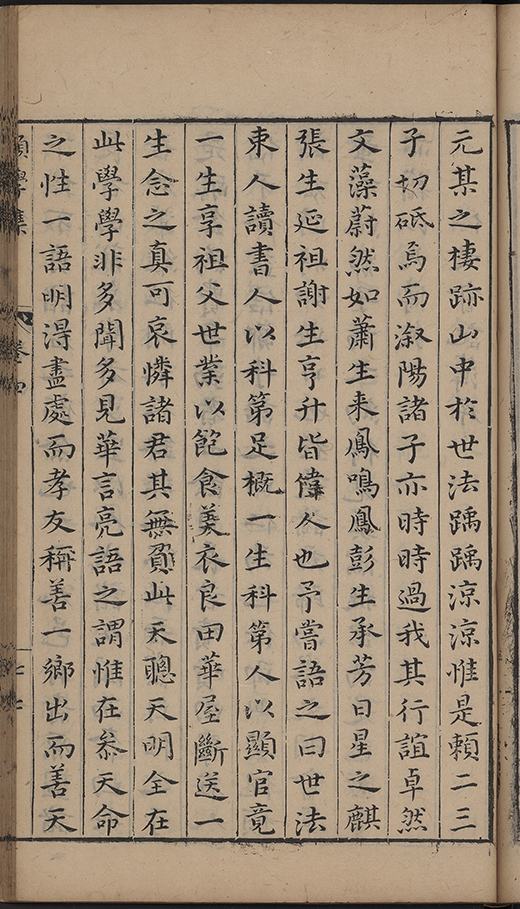 元某之棲跡山中於世法踽踽涼涼惟是賴二三
子切砥焉而溆陽諸子亦時時過我其行誼卓然
文藻蔚然如蕭生来鳳鳴鳳彭生承芳日星之麒
張生延祖謝生亨升皆偉人也予嘗語之曰世法
束人讀書人以科第足概一生科第人以顯官竟
一生享祖父世業以飽食美衣良田華屋斷送一
生念之真可哀憐諸君其無負此天聰天明全在
此學學非多聞多見華言亮語之謂惟在叅天命
之性一語明得盡處而孝友稱善一鄉出而善天
學集
卷四